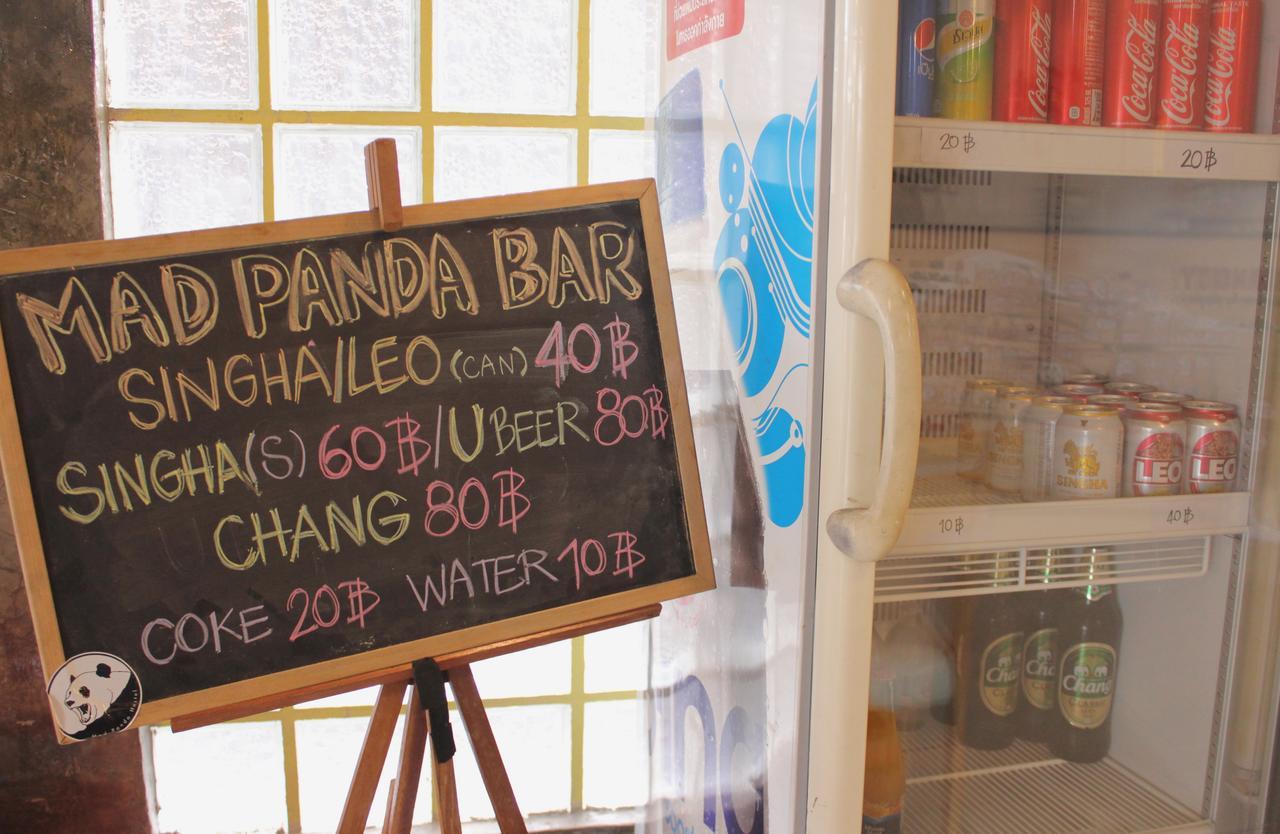 MAD PANDA BAR
SINGHA/LEO (CAN) 40฿
SINGHA(S) 60฿/U BEER 80฿
CHANG 80฿
COKE 20฿ WATER 10฿
Coca-Cola
Coca-Cola
Coca-Cola
Coca-Cola
20฿
20฿
SINGHA
LEO
LEO
10฿
40฿
Cha
Cha
Chang
CLASSIC